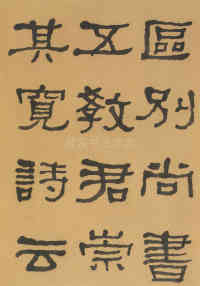 區別尚書
五教君崇
其寬詩云